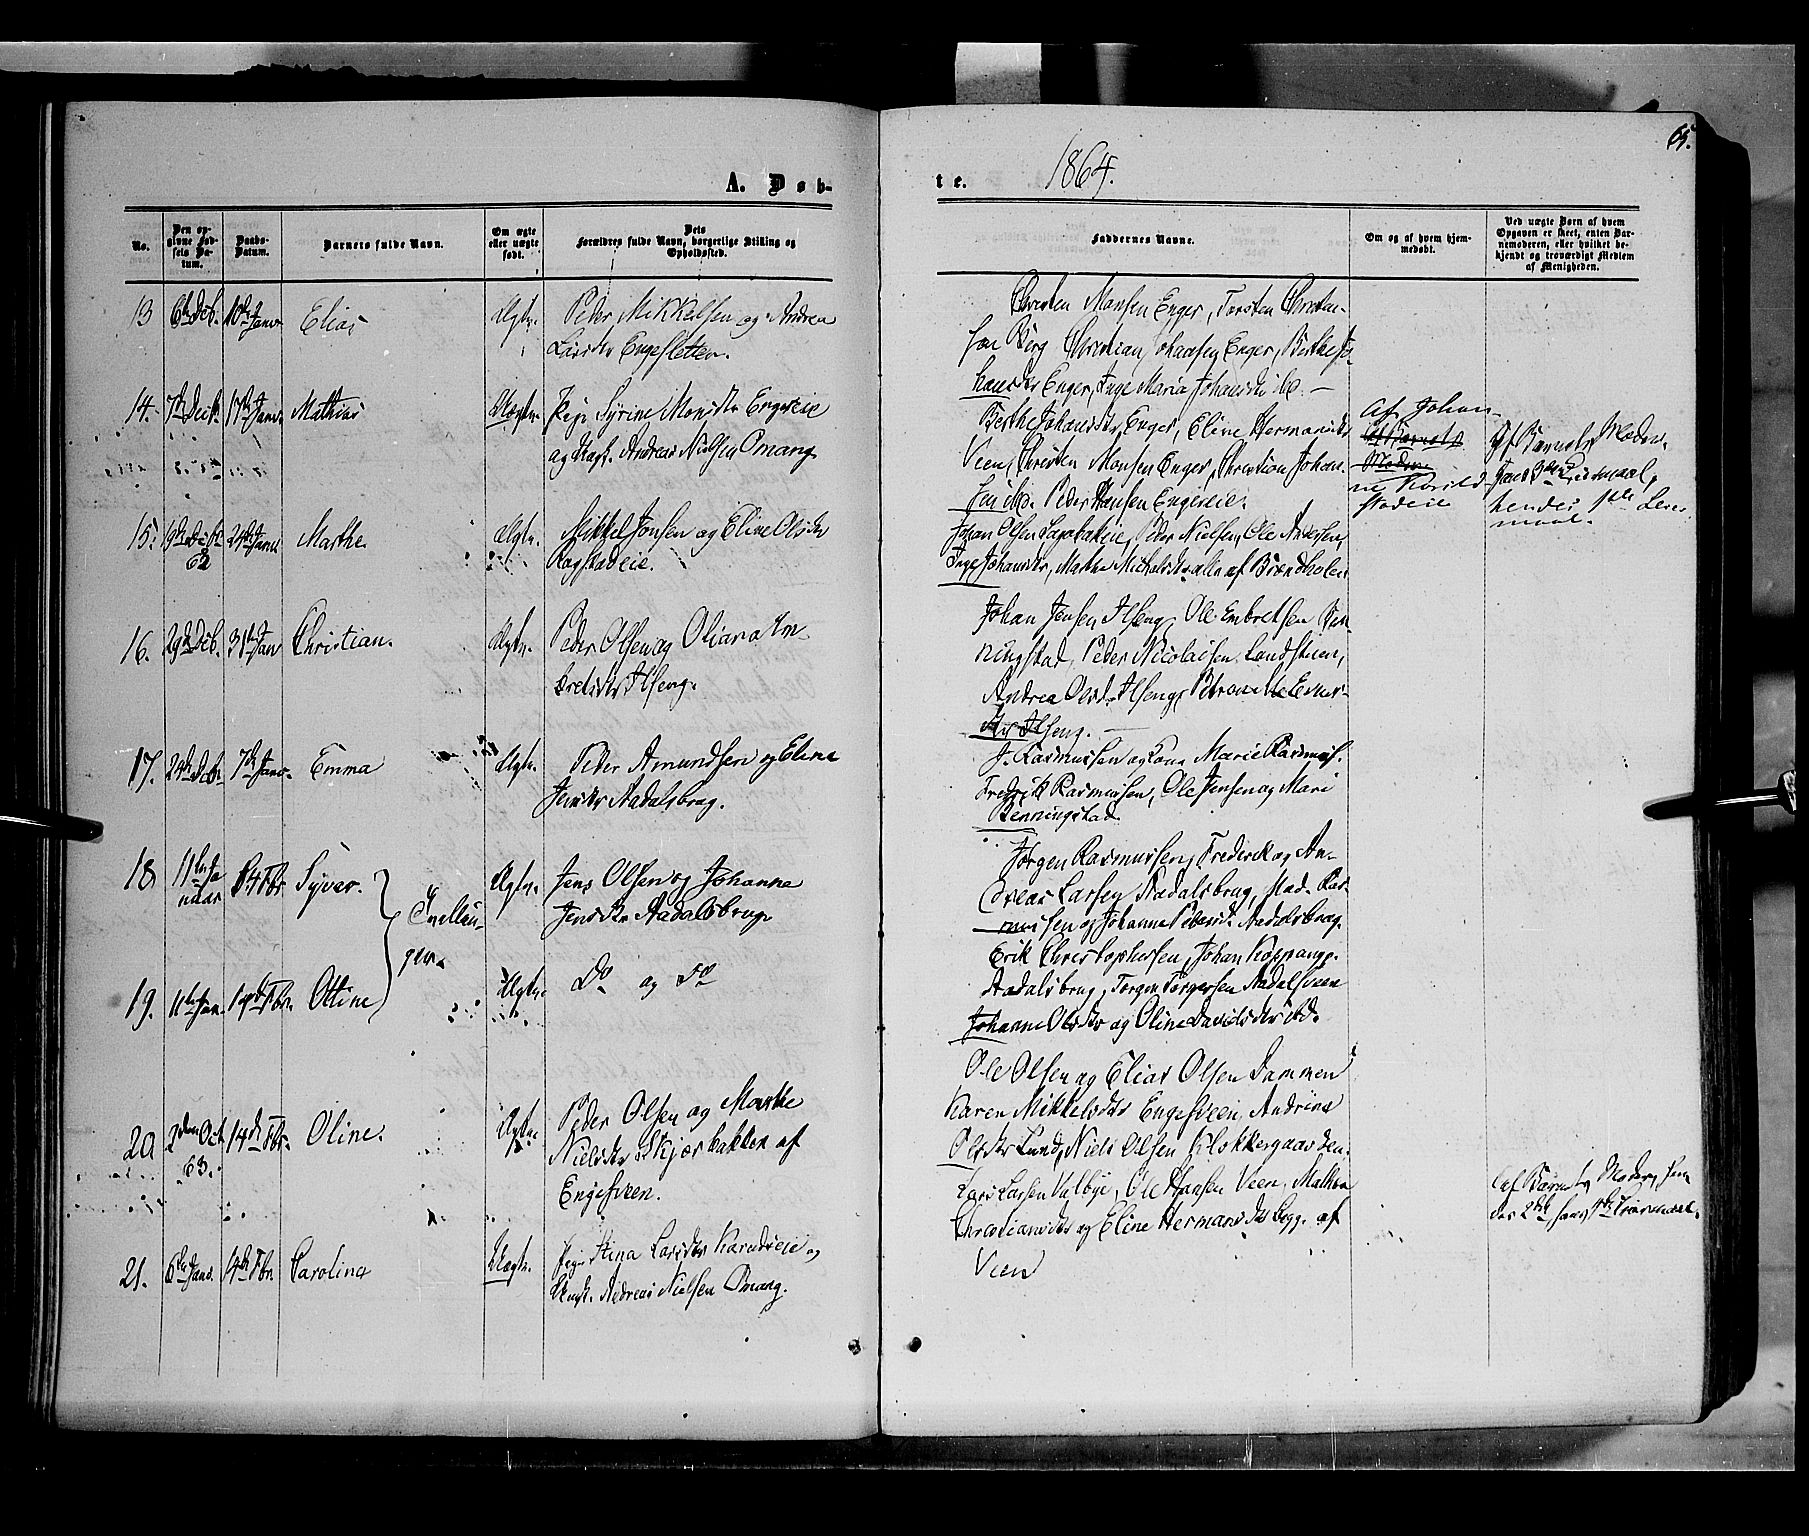 65.
1864.
A. Døb-
te.
No.
Den op-
givne Fød-
sels Da-
tum.
Daabs-
Datum.
Barnets fulde Navn.
Om ægte
eller uægte
født.
Dets
Forældres fulde Navn, borgerlige Stilling og
Opholdssted.
Faddernes Navne.
Om og af hvem hjem-
medøbt.
Ved uægte Børn af hvem
Opgaven er skeet, enten Bar-
nemoderen, eller hvilket be-
kjendt og troværdigt Medlem
af Menigheden.
13
6te Decb.
10de Janr
Elias
Ægte.
Peder Mikkelsen og Andrea
Larsdtr Engesletten.
Christen Monsen Enger, Torsten Christen-
sen Berg Christian Johansen Enger, Berthe Jo-
hansdtr Enger, Inge Maria Johansdtr ibd. —
14.
7de Decb.
17de Janr.
Mathias
Uægte.
Pige Syrine Monsdtr Engereie
og Ungk. Andreas Nielsen Omang
Berthe Johansdtr Enger, Eline Hermansdtr
Veen, Christen Monsen Enger, Christian Johan-
sen ibd. Peder Hansen Engereie.
Af Johan-
Af Barnets
Moder
Af Barnets Moder.
hans 3die Leiermaal,
hendes 1ste Leier-
maal.
15.
19de Decbr
63
24de Janr
Marthe
Ægte.
Mikkel Jonsen og Eline Olsdtr
Ragstadeie.
Johan Olsen, Peder Nielsen, Ole Andersen,
Inge Johansdtr, Marthe Michelsdtr alle af Brændholen
16.
29de Decb.
31te Jan
Christian.
Ægte.
Peder Olsen og Oliana Em-
bretsdtr Ilseng.
Johan Jensen Ilseng, Ole Embretsen Ben-
ningstad, Peder Nicolaisen Landstuen,
Andrea Olsdtr Ilseng, Petronelle Einer-
dtr Ilseng. —
17.
24de Decbr
7de Janr.
Emma
Ægte.
Peder Amundsen og Eline
Jensdtr Aadalsbrug.
J. Rasmussen og Kone Marie Rasmuss.
Fredrik Rasmussen, Ole Jensen og Mari
Benningstad.
18
11te Ja
nuar
14 Fbr
Syver.
Tvillin-
ger.
Ægte.
Jens Olsen og Johanne
Jensdtr Aadalsbrug
Jørgen Rasmussen, Frederik og An-
dreas Larsen Aadalsbrug, Mad. Ras-
mussen og Johanne Pedersdtr Aadalsbrug.
19.
11te Jan.
14de Fbr.
Ottine
Ægte.
Do og Do
Erik Christophersen, Johan Koppang.
Aadalsbrug, Torger Torgersen Aadalsveen
Johanne Olsdtr og Oline Davidsdtr ibd.
20
2den Oct
63.
14de Fbr.
Oline.
Ægte
Peder Olsen og Marthe
Nielsdtr Skjærbakken af
Engesveen.
Ole Olsen og Elias Olsen Dammen
Karen Mikkelsdtr Engesveen, Andrine
Olsdtr Lund, Niels Olsen Klokkergaarden.
21.
6te Janr.
14de Fbr.
Carolina
Uægte.
Pige Stina Larsdtr Karudseie og
Ungk. Andreas Nielsen Omang.
Lars Larsen Valbye, Ole Hansen Veen, Mathea
Christiansdtr og Eline Hermansdtr begge af
Veen
Af Barnets Moder, hen-
des 2det hans 4de Leiermaal.